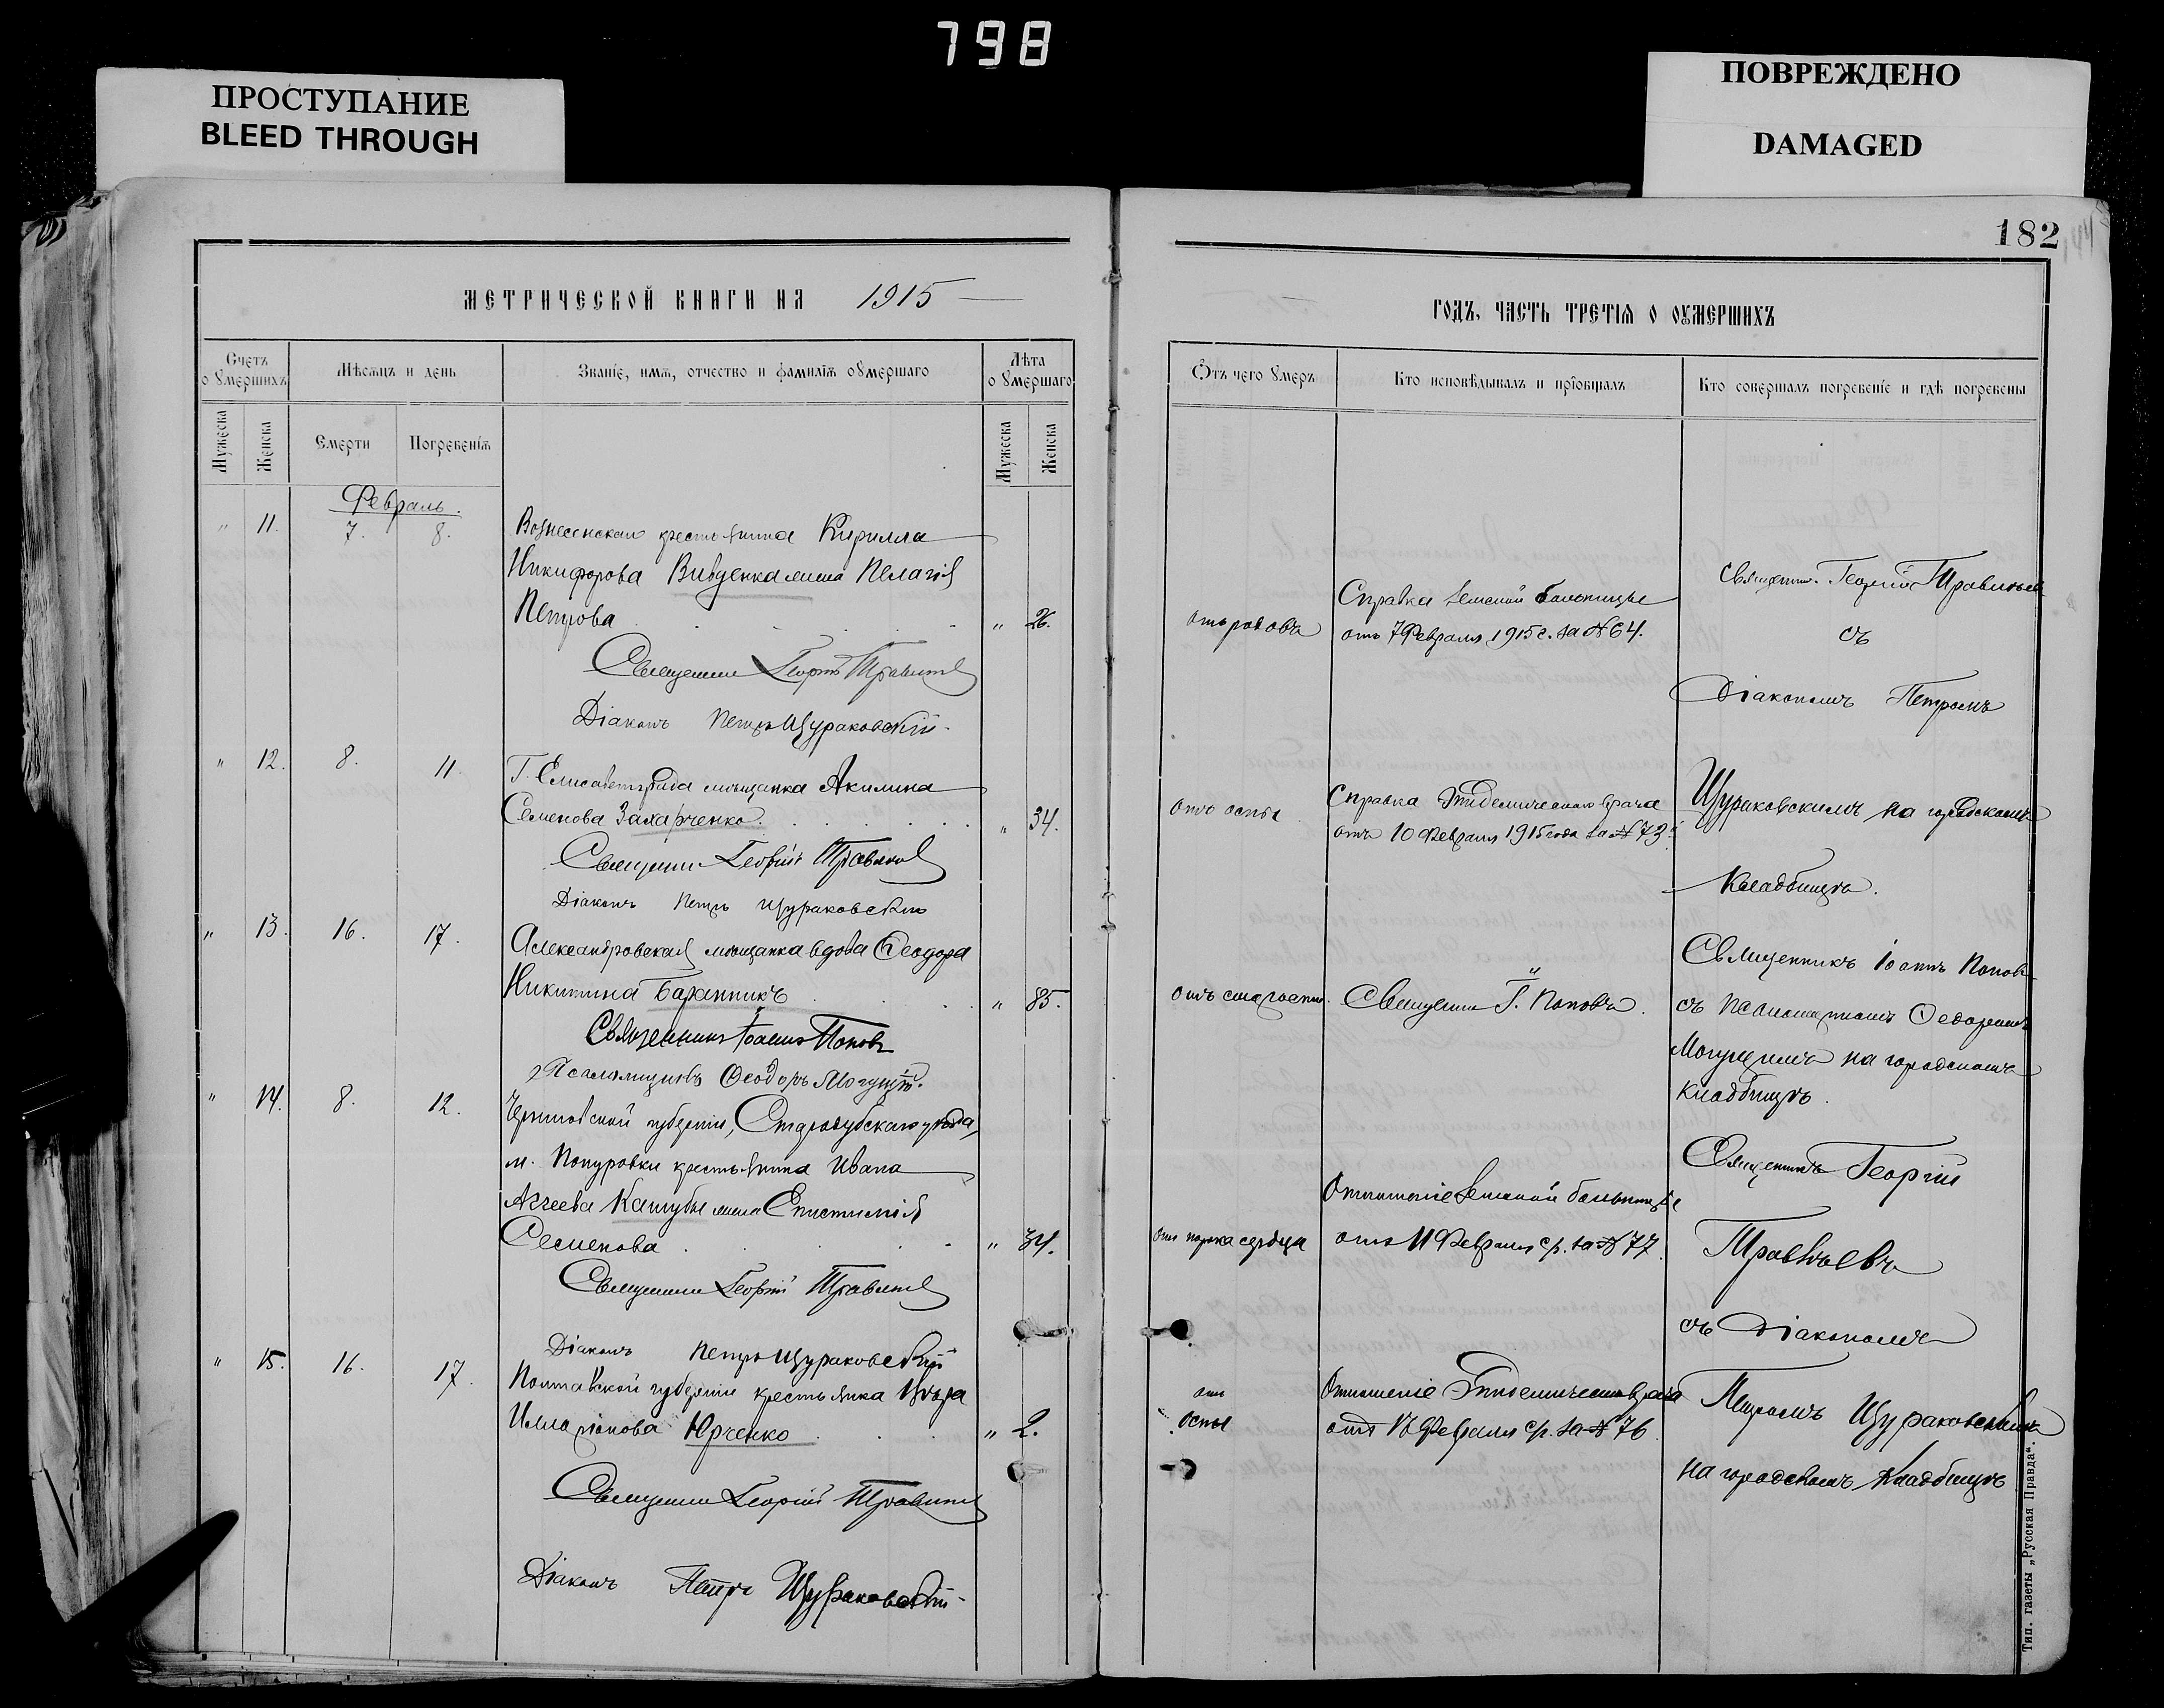 798
ПРОСТУПАНИЕ
BLEED THROUGH
ПОВРЕЖДЕНО
DAMAGED
182
МЕТРИЧЕСКОЙ КНИГИ НА 1915
ГОДЪ, ЧАСТЬ ТРЕТІЯ О ОУМЕРШИХЪ
Счетъ о умершихъ
Мѣсяцъ и день
Званіе, имя, отчество и фамилія оумершаго
Лѣта оумершаго
Отъ чего умеръ
Кто исповѣдывалъ и пріобщалъ
Кто совершалъ погребеніе и гдѣ погребены
Мужеска
Женска
Смерти
Погребенія
Мужеска
Женска
Февраль.
" 11. 7. 8. Вознесенскаго крестьянина Кирилла
Никифорова жена Пелагія
Петрова " 26.
отъ родовъ
Справка Земской больницы
отъ 7 Февраля 1915 г. за № 64.
Священникъ Георгій
Діаконъ Петръ Щураковскій.
Священ. Георгій
съ
Діакономъ Петромъ
Щураковскимъ на городскомъ
Кладбищѣ.
" 12. 8. 11. Г. Елисаветграда мѣщанка Акилина
Семенова Захарченко. " 34.
отъ оспы
Справка Эпидемическаго врача
отъ 10 Февраля 1915 года за № 73.
Священникъ Георгій
Діаконъ Петръ Щураковскій
" 13. 16. 17. Александровская мѣщанка вдова Ѳеодора
Никитина Баранникъ " 85.
отъ старости.
Священникъ І. Поповъ.
Священникъ Іоаннъ Поповъ
съ Псаломщикомъ Ѳедоромъ
Могущимъ на городскомъ
кладбищѣ.
Священникъ Іоаннъ Поповъ
Псаломщикъ Ѳеодоръ Могущій.
" 14. 8. 12. Черниговской губерніи, Стародубскаго уѣзда,
м. Понуровки крестьянина Ивана
Агѣева Кашубы жена Епистимія
Семенова " 34.
отъ порока сердца
Отношеніе Земской больницы
отъ 11 Февраля с/г. за № 77.
Священникъ Георгій
съ Діакономъ
Петромъ Щураковскимъ
на городскомъ Кладбищѣ
Священникъ Георгій
Діаконъ Петръ Щураковскій
" 15. 16. 17. Полтавской губерніи крестьянка
Илларіонова Юрченко " 2.
отъ
оспы
Отношеніе Эпидемическаго врача
Февраля с/г. за № 76.
Священникъ Георгій
Діаконъ Петръ Щураковскій
Тип. газеты „Русская Правда“.